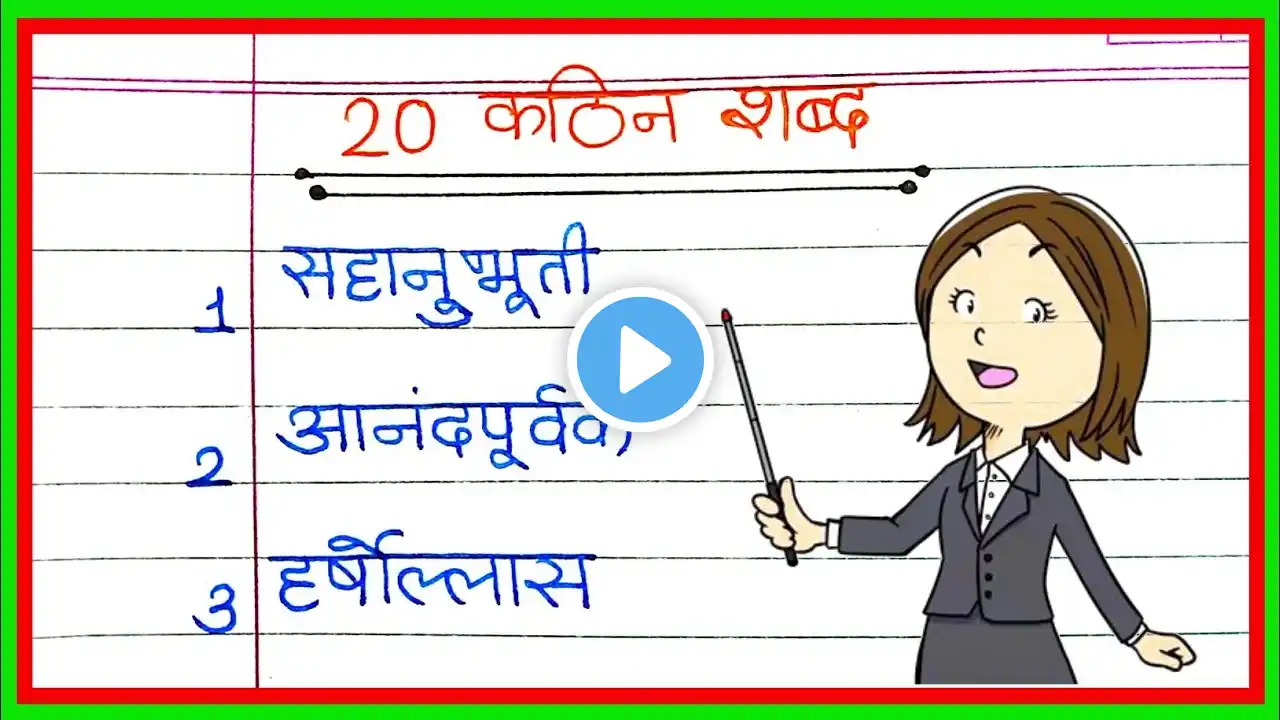 20 कठिन शब्द
1 सहानुभूती
2 आनंदपूर्वक
3 हर्षोल्लास